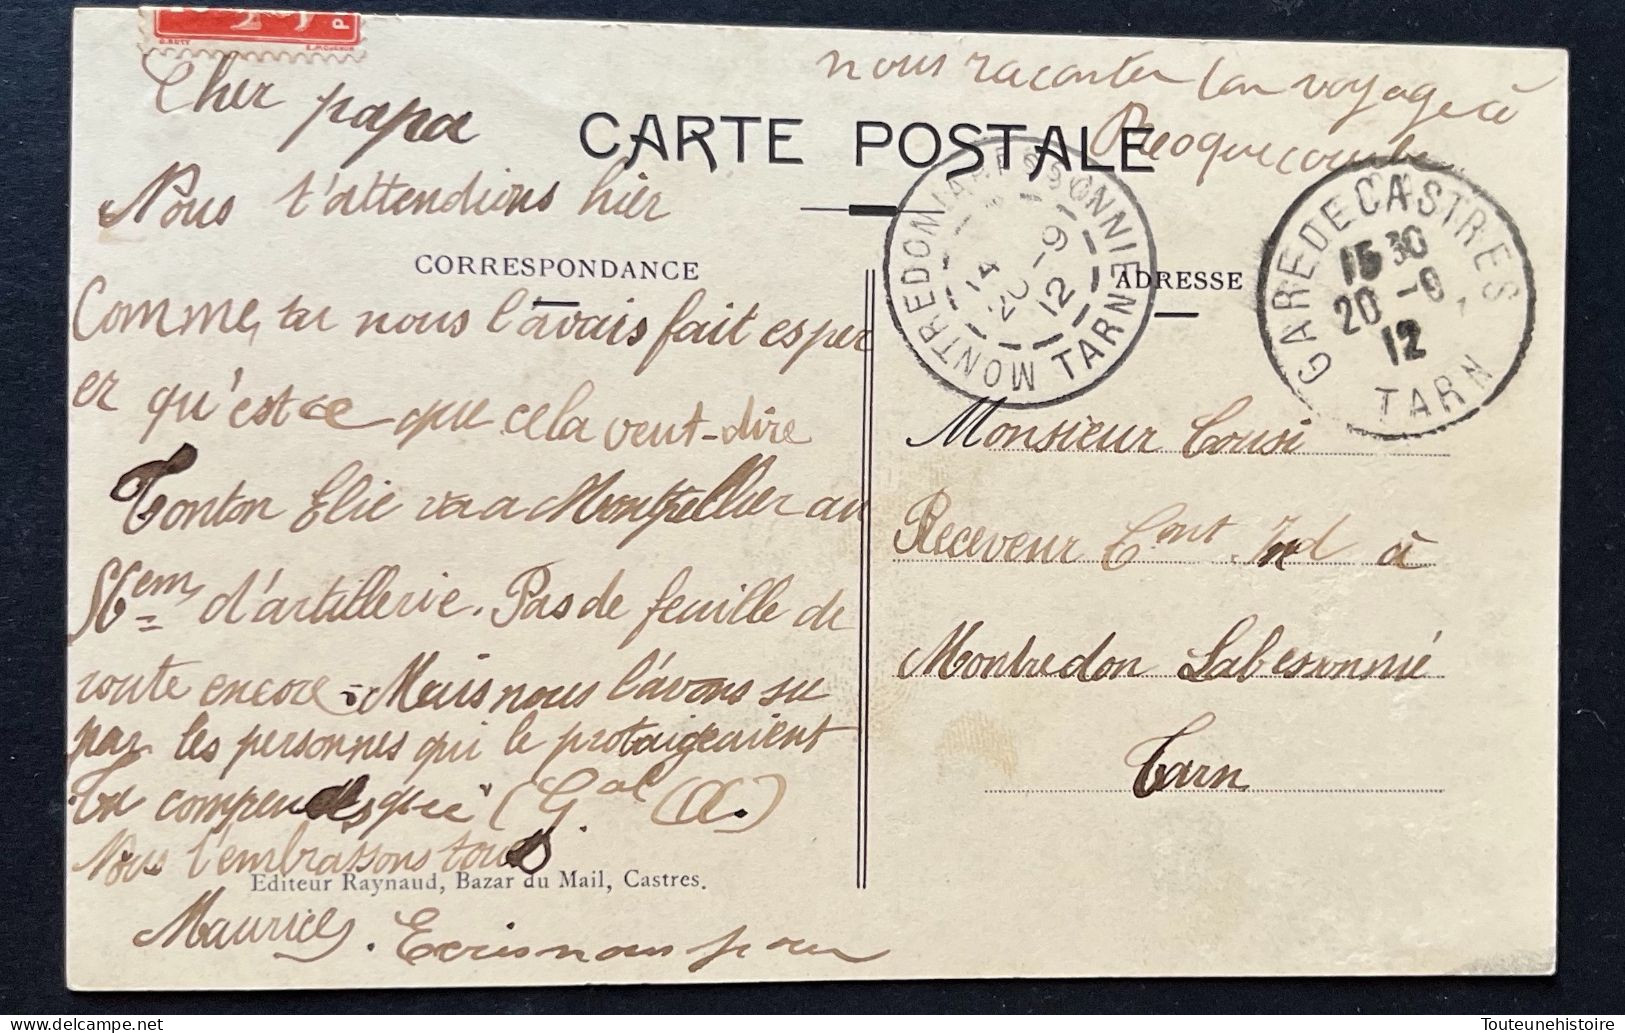 Cher papa
nous raconter ton voyage à
Rocquecourbe
CARTE POSTALE
Nous t'attendions hier
CORRESPONDANCE
ADRESSE
MONTREDON-LABESSONNIE TARN
14
20 -9
12
GARE DE CASTRES
15 30
20 -9
12
TARN
Comme, tu nous l'avais fait esper
er qu'est ce que cela veut-dire
Tonton Elie va a Montpellier au
56em d'artillerie. Pas de feuille de
route encore. Mais nous l'avons su
par les personnes qui le protaigeaient
Tu compends qui (Gal A.)
Nous t'embrassons tous
Editeur Raynaud, Bazar du Mail, Castres.
Maurice. Ecris nous pour
Monsieur Cousi
Receveur Cont Ind à
Montredon Labessonnié
Tarn
Touteunehistoire